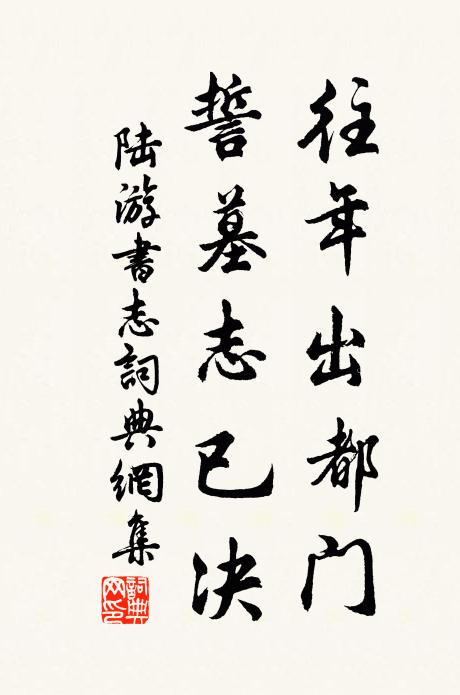 往年出都門
誓墓志已决
陆游書志詞典網集
詞典網印